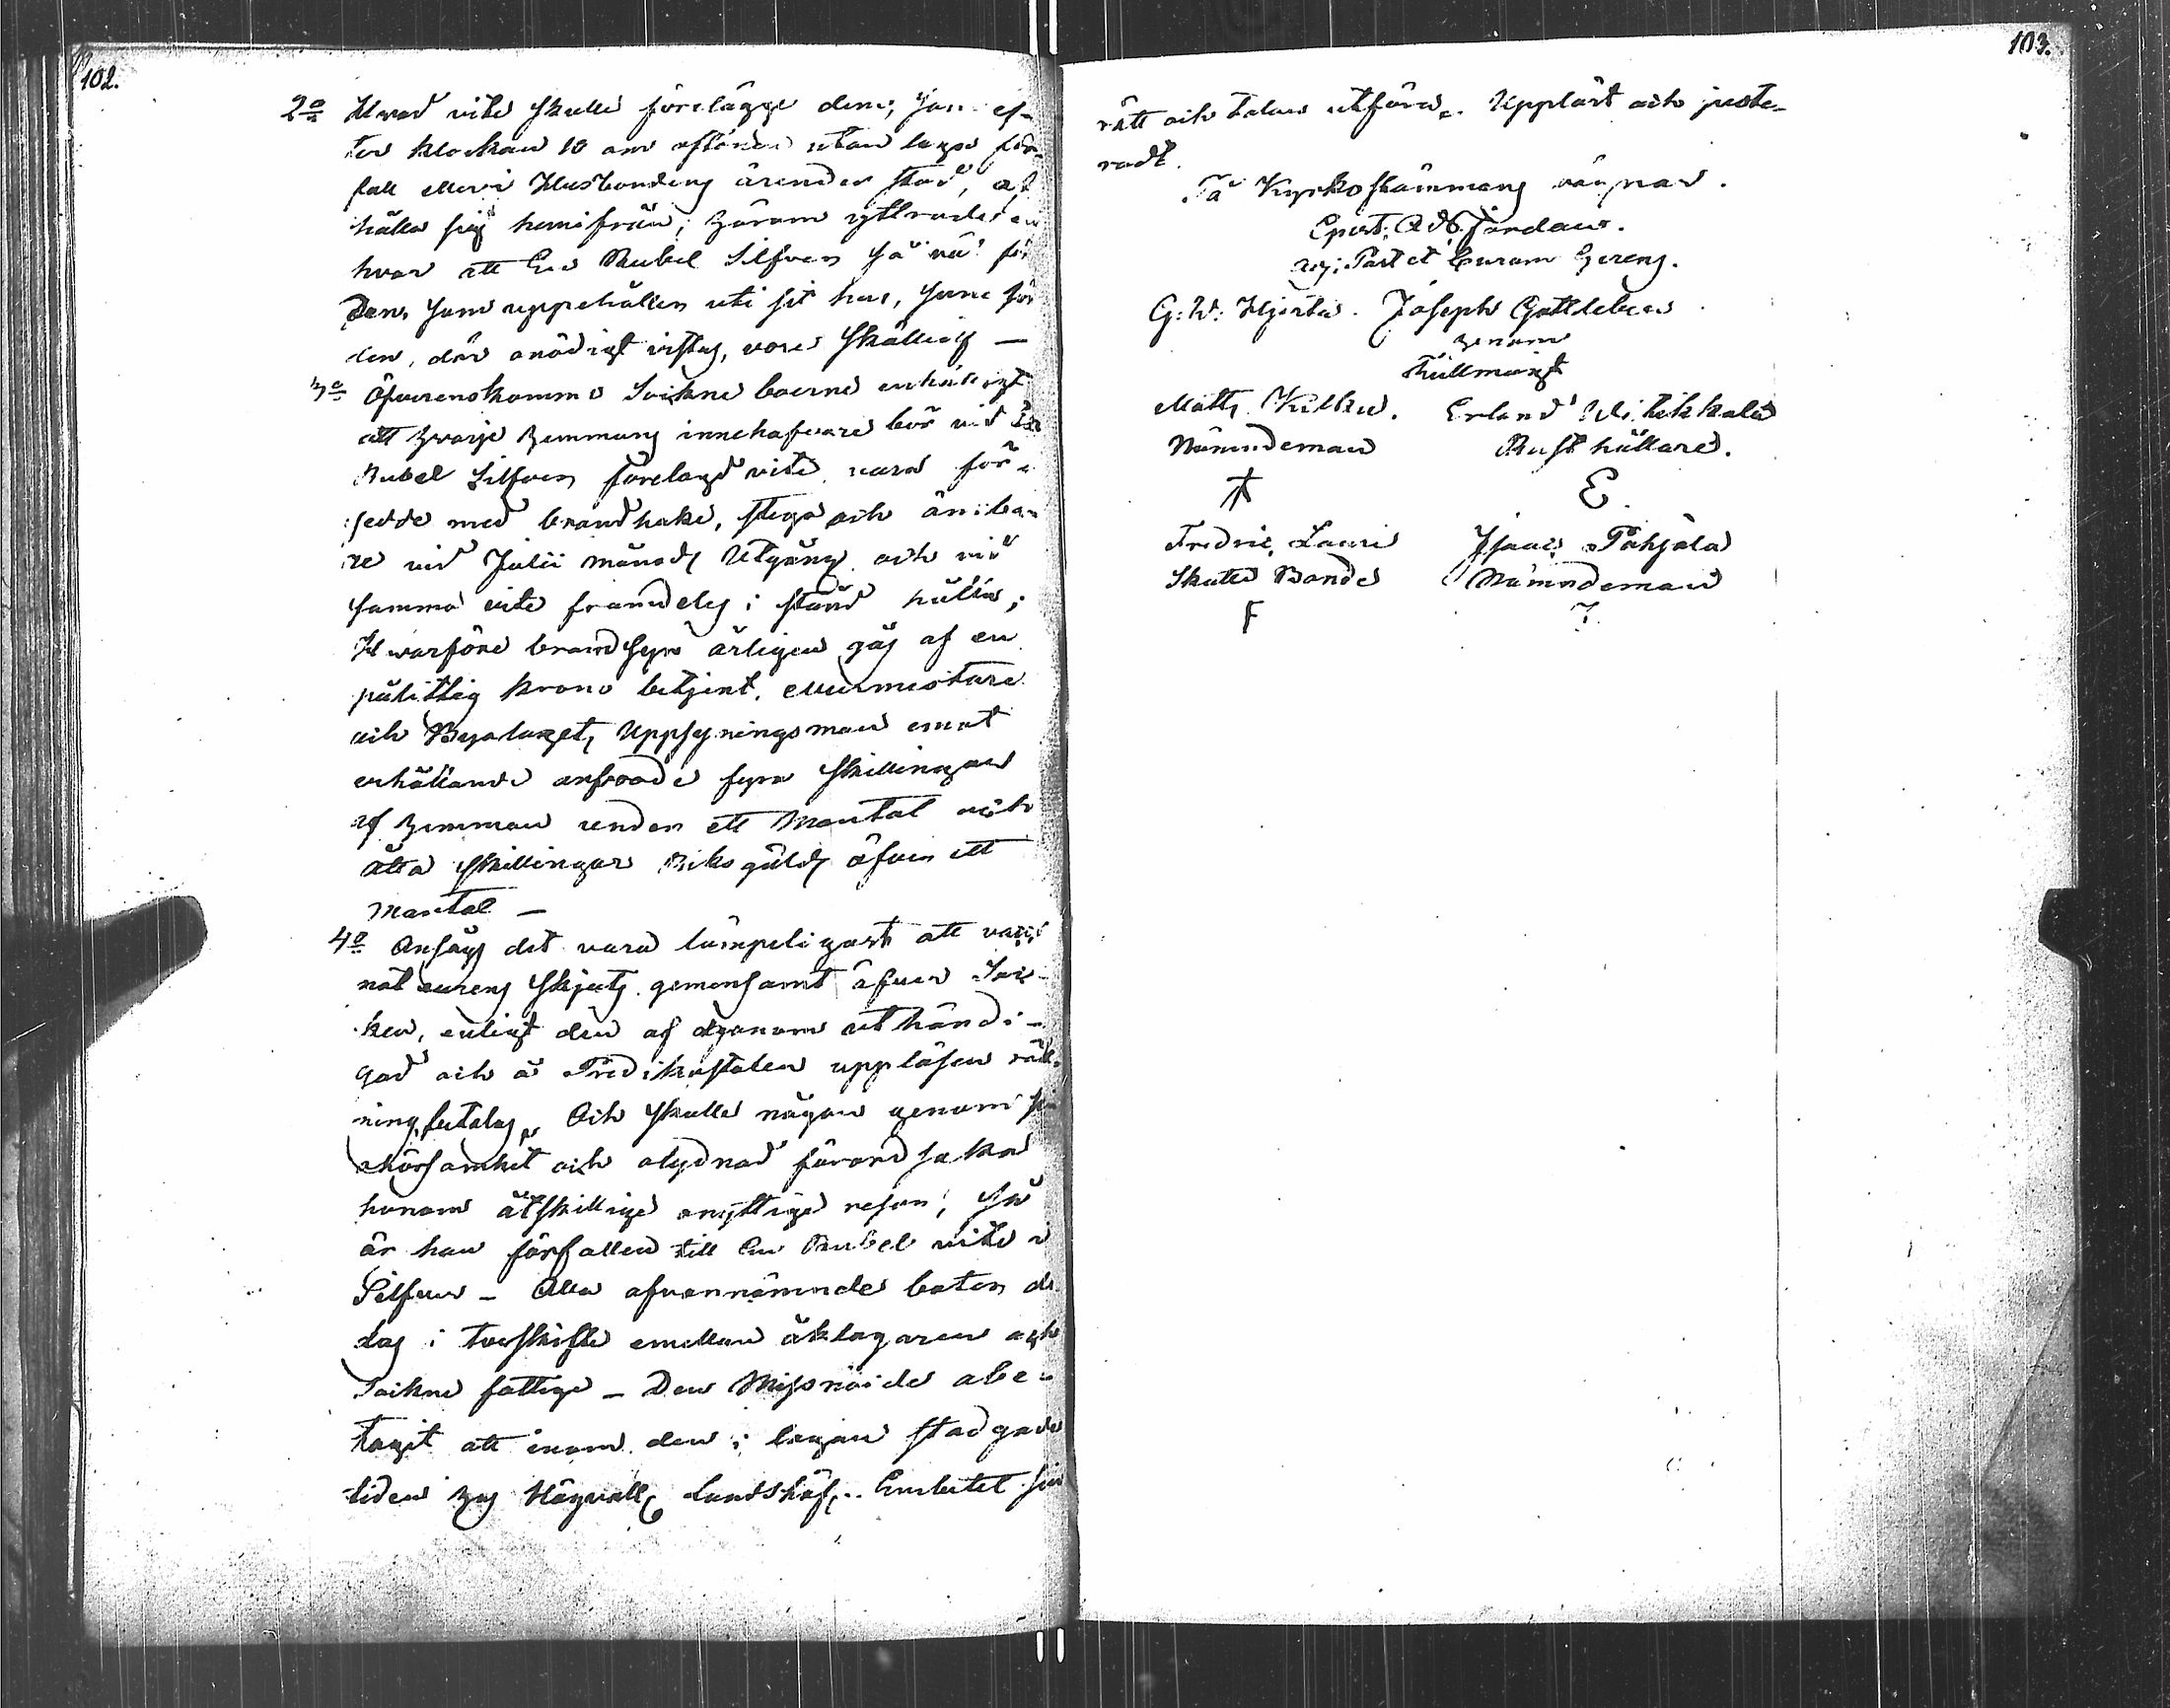 102.
2o Hvad vite skulle förelägge dem, som ef-
ter klockan 10 om aftonen utan laga för-
fall eller i Husbondens ärender stad, af
hålla sig hemifrån, härom yttrades en
hvar att En Rubel Silfver så väl för
den, som uppehålles uti sit hus, som för
den, där onödigt vistas, vore skälligt —
3o Öfverenskommo Sockne boerne enhäligt
att hvarje hemmans innehafvare bör vid En
Rubel Silfvers förelagd vite vara för-
sedde med brandhake, stega och ämba-
re vid Julii månads Utgång och vid
samma vite framdeles i stånd hålla;
Hvarföre brandsyn årligen gås af en
pålitlig krono betjent, Murmästare
och Byalagets Uppsyningsman emot
erhållande arfvode fyra skillingar
af hemman under ett Mantal och
åtta skillingar Riksgälds öfver ett
Mantal —
4o Ansågs det vara lämpeligast att vacci
nateurens skjuts gemensamt öfver Soc-
ken, enligt den af honom uthändi-
gad och å Predikostolen uppläsen räk-
ning betalas. Och skulle någon genom sin
ohörsamhet och olydnad förorsaka
honom åtskillige onyttige resor, så
är han förfallen till En Rubel vite i
Silfver — Alla ofvannämnde böter de
las i tveskifte emellan åklagaren och
Sockne fattige — Den Missnöide obe-
tagit att inom den i lagen stadgade
tiden hos Högvälb. Landshöf.. Embetet sin
103.
rätt och talan utföra. Uppläst och juste-
radt.
På Kyrkostämmans vägnar.
G: W: Hjerta. Joseph Gottleben
genom
fullmagt
Matts Kilkku. Erland
Nämndeman Rusthållare.
E.
Fredric Lauri Isaac Pahjala
Skatte Bonde Nämndeman
F